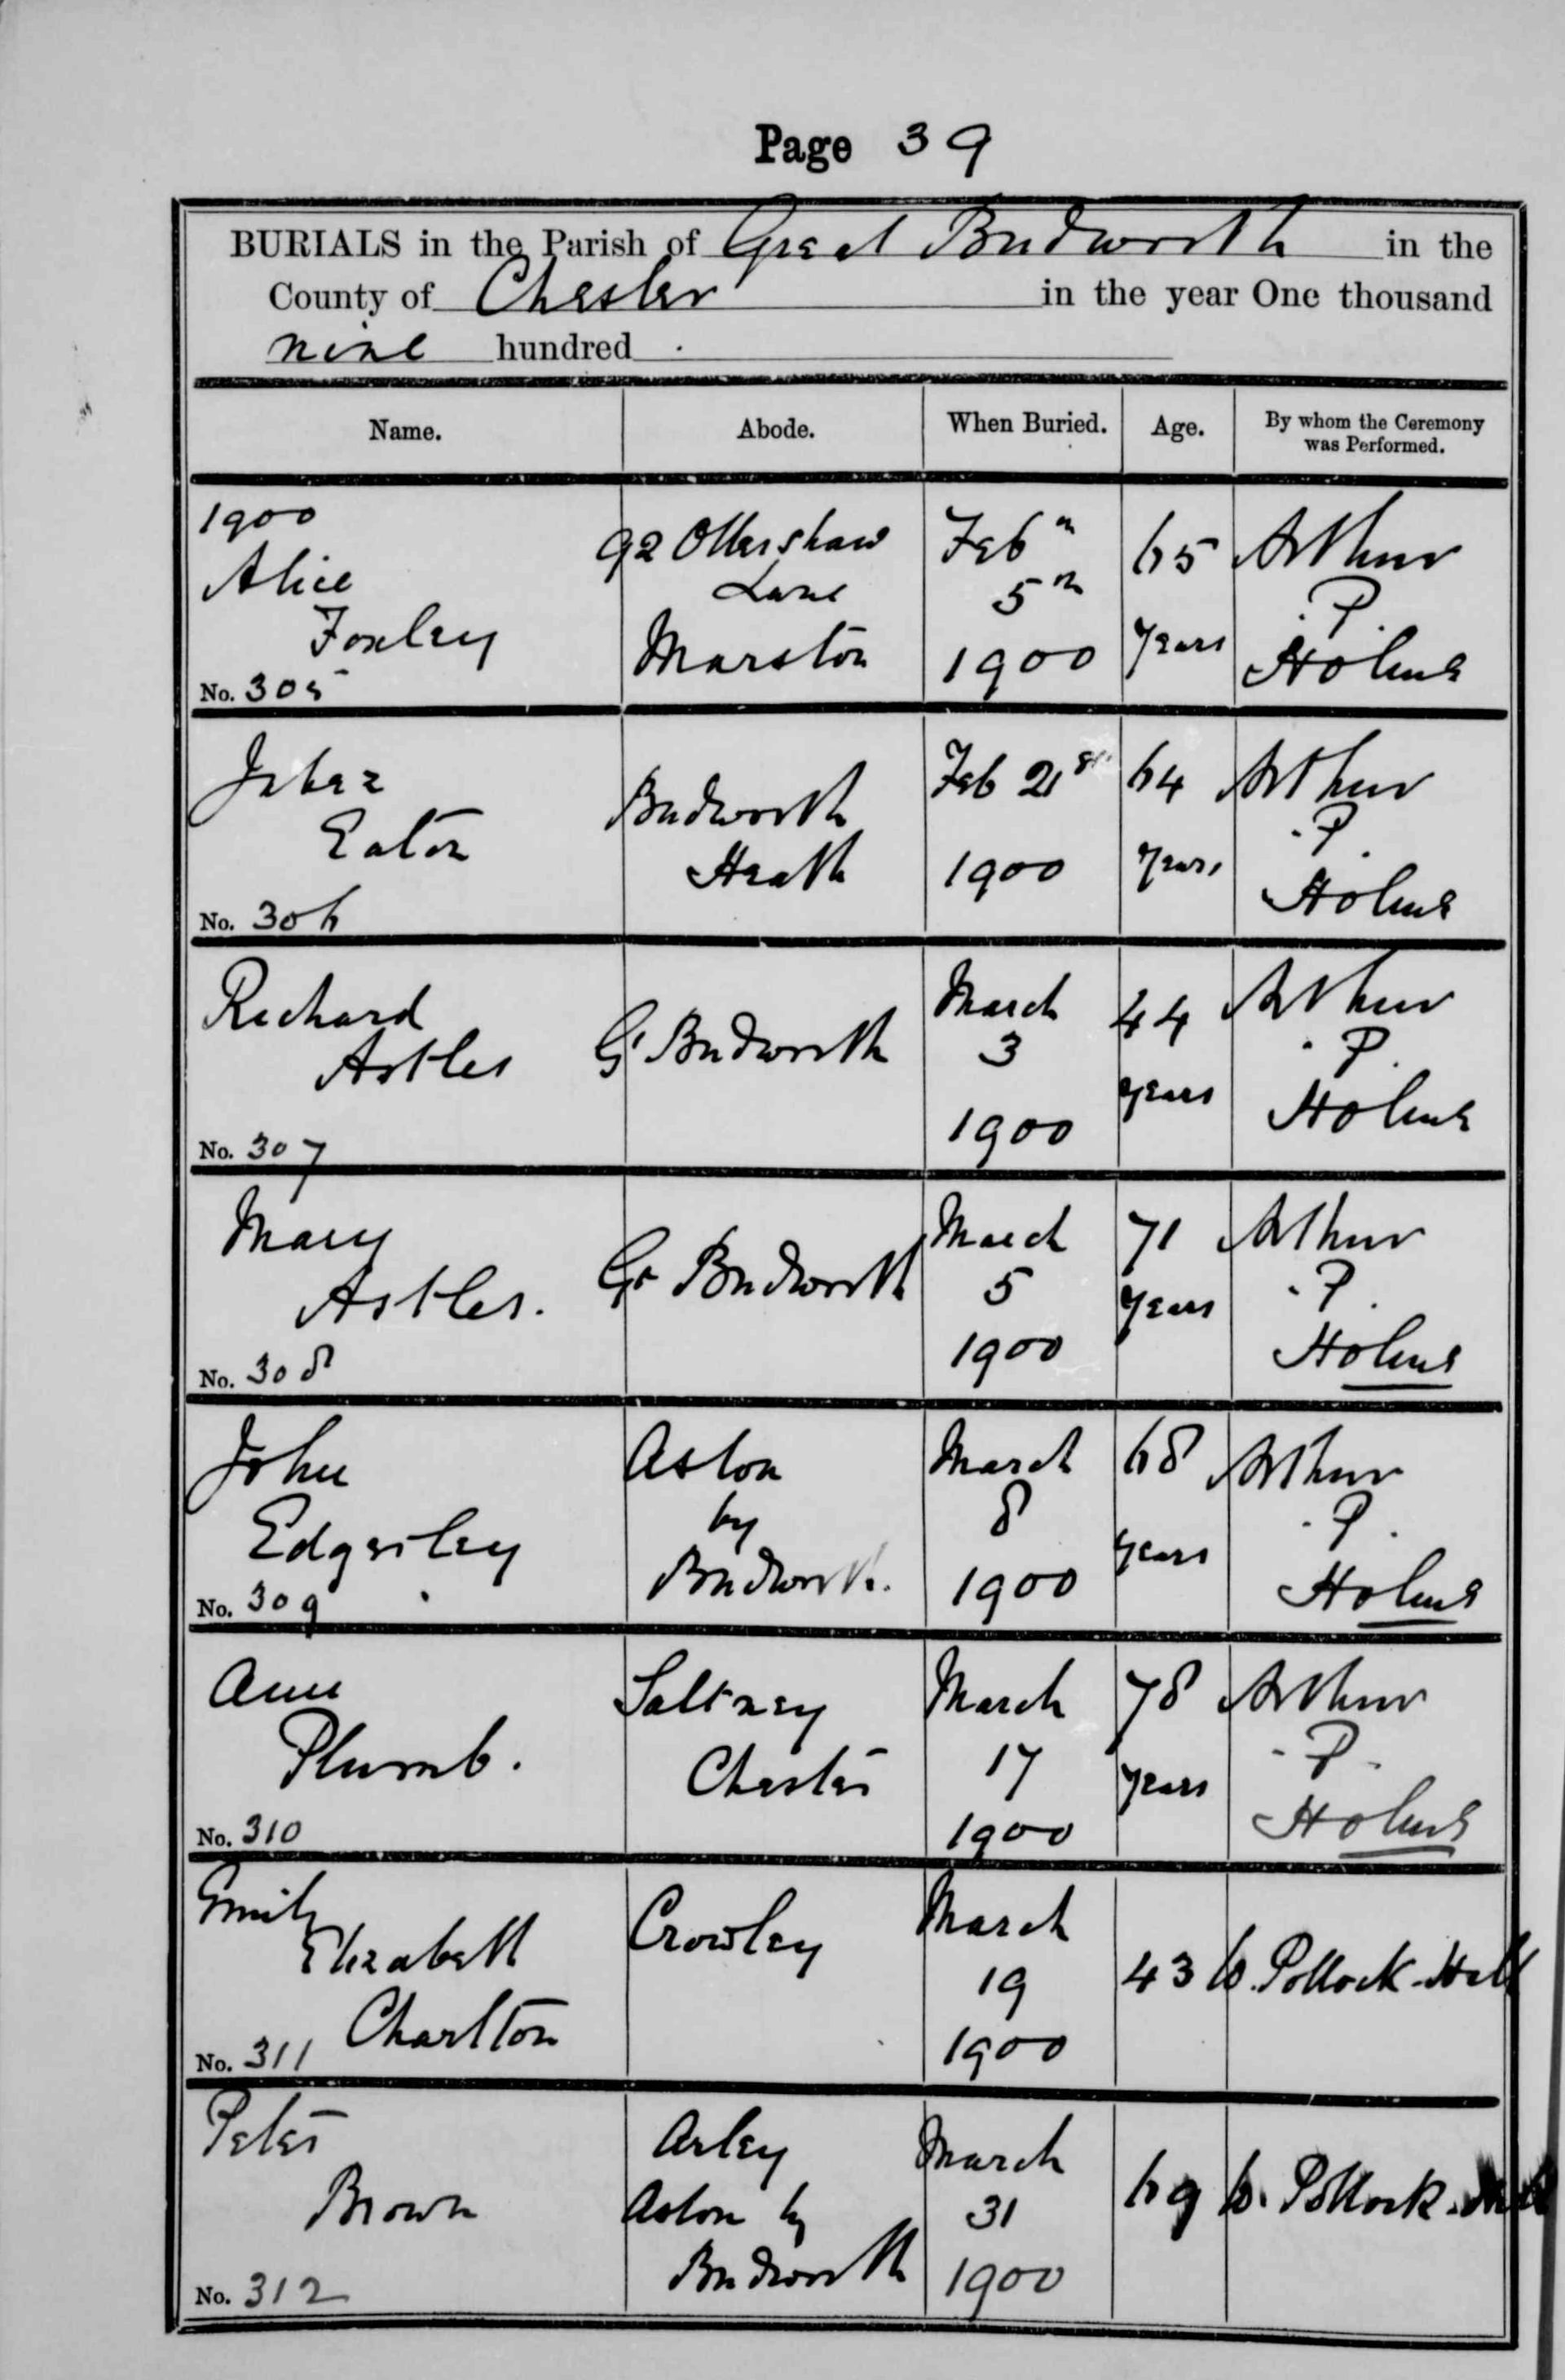 Page 39
BURIALS in the Parish of Great Budworth in the
County of Chester in the year One thousand
nine hundred .
Name. Abode. When Buried. Age. By whom the Ceremony was Performed.
1900
Alice
Foxley
No. 305
92 Ollershaw
Lane
Marston
Feb
5th
1900
65
years
Arthur
P.
Holme
Jabez
Eaton
No. 306
Budworth
Heath
Feb 21st
1900
64
years
Arthur
P.
Holme
Richard
Astles
No. 307
Gt Budworth
March
3
1900
44
years
Arthur
P.
Holme
Mary
Astles.
No. 308
Gt Budworth
March
5
1900
71
years
Arthur
P.
Holme
John
Edgerley
No. 309
Aston
by
Budworth.
March
8
1900
68
years
Arthur
P.
Holme
Ann
Plumb.
No. 310
Saltney
Chester
March
17
1900
78
years
Arthur
P.
Holme
Emily
Elizabeth
Charlton
No. 311
Crowley
March
19
1900
43
Pollock-Hill
Peter
Brown
No. 312
Arley
Aston by
Budworth
March
31
1900
69
Pollock-